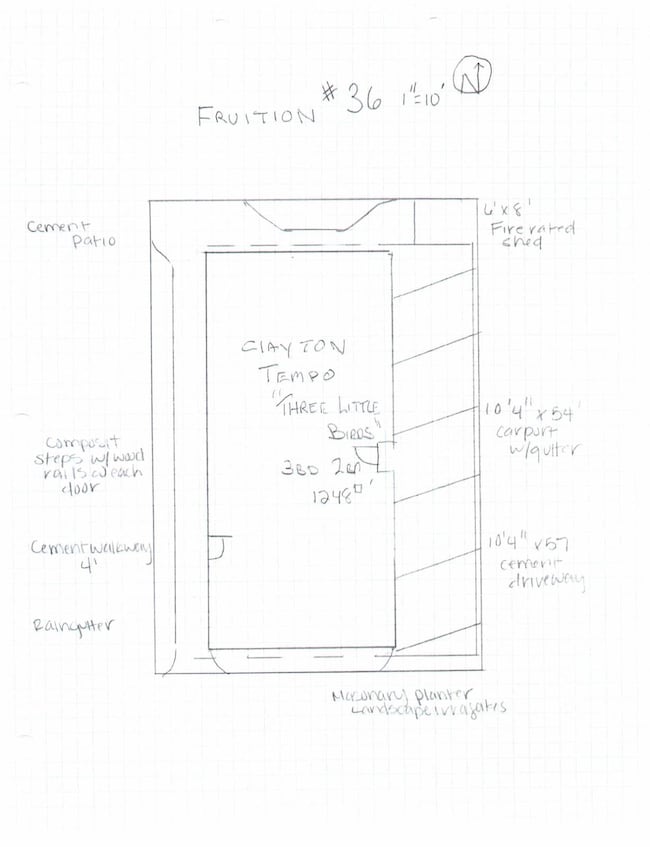 FRUITION # 36 1"=10' N
Cement
Patio
6'x8'
Fire rated
shed
CLAYTON
TEMPO
"THREE LITTLE
BIRDS"
3BD 2BA
1248□'
10'4" x 54'
carport
w/gutter
Composit
steps w/wood
rails @ each
door
Cement walkway
4'
10'4" x 57
cement
driveway
Raingutter
Masonary planter